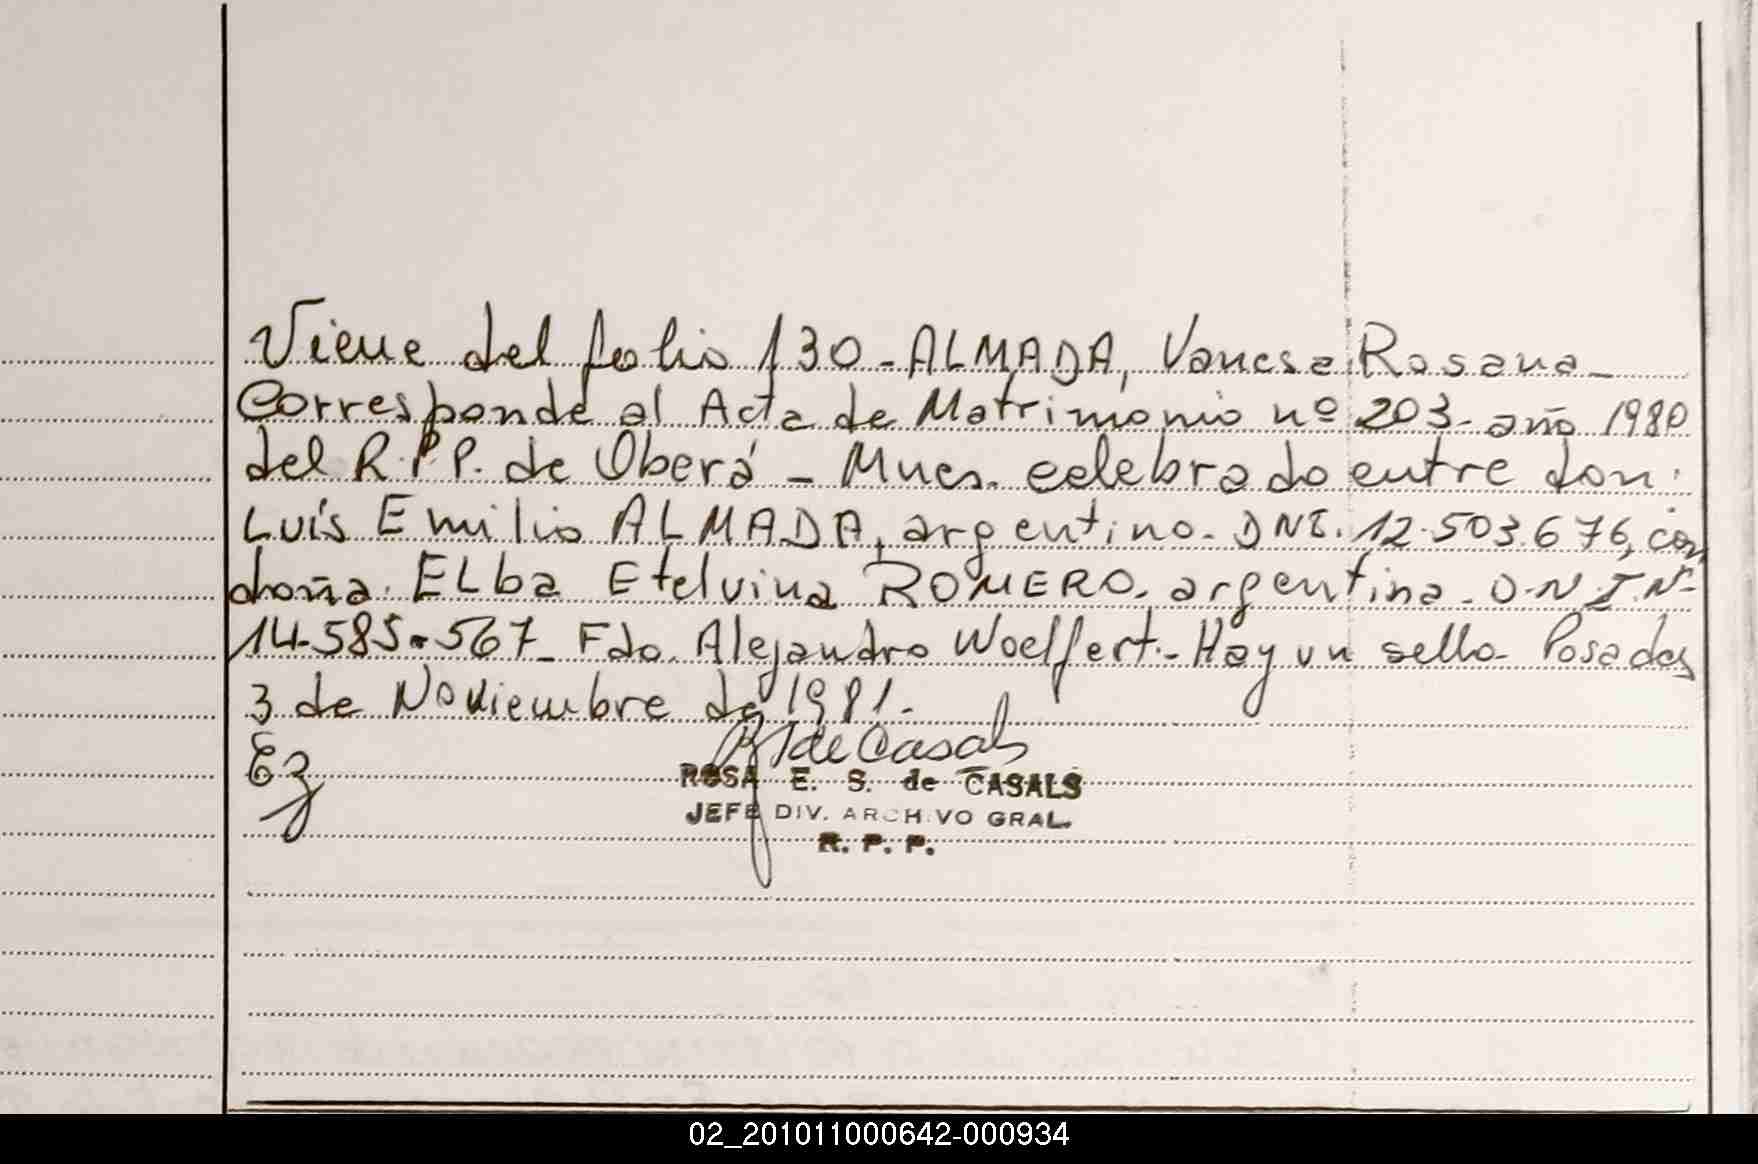 Viene del folio 130 - ALMADA, Vanesa Rosana -
Corresponde al Acta de Matrimonio nº 203 - año 1980
del R.P.P. de Oberá - Mnes. celebrado entre don:
Luís Emilio ALMADA, argentino. DNI. 12.503.676, con
doña. ELba Etelvina ROMERO. argentina. D.N.I.Nº
14.585.567_ Fdo. Alejandro Woelfert.- Hay un sello- Posadas
3 de Noviembre de 1981.
Ez
de Casals
ROSA E. S. de CASALS
JEFE DIV. ARCHIVO GRAL.
R. P. P.
02_201011000642-000934